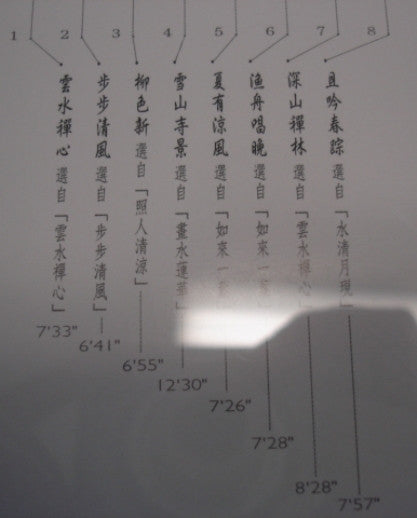 1 雲水禪心 選自「雲水禪心」 7'33"
2 步步清風 選自「步步清風」 6'41"
3 柳色新 選自「照人清涼」 6'55"
4 雪山寺景 選自「畫水蓮華」 12'30"
5 夏有涼風 選自「如來一葉」 7'26"
6 漁舟唱晚 選自「如來一葉」 7'28"
7 深山禪林 選自「雲水禪心」 8'28"
8 且吟春踪 選自「水清月現」 7'57"